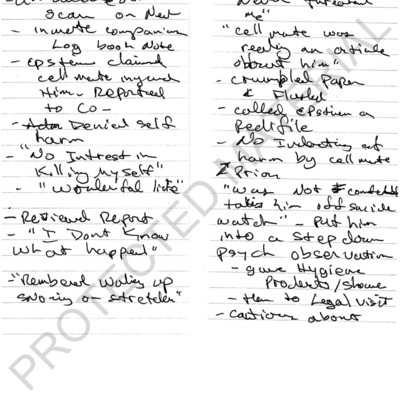 scan on Next
- inmate companion
Log book Note
- epstein claimed
cell mate injured
Him - Reported
to Co -
- Denied self
harm
- "No Intrest in
Killing myself"
- "Wonderful life"
- Reviewed Report
- "I Dont Know
what happed"
- "Rembend waking up
snoring on stretcher"
me"
"cell mate was
reading an article
about him"
- crumpled Paper
& Flushed
- called epstien a
Pedifile
- No Indocating of
harm by cell mate
Prior
"was Not comfortable
taking him off suicide
watch" - Put him
into a step down
psych observation
- gave Hygiene
Products / shower
- then to Legal visit
- cautious about
PROTECTED MATERIAL